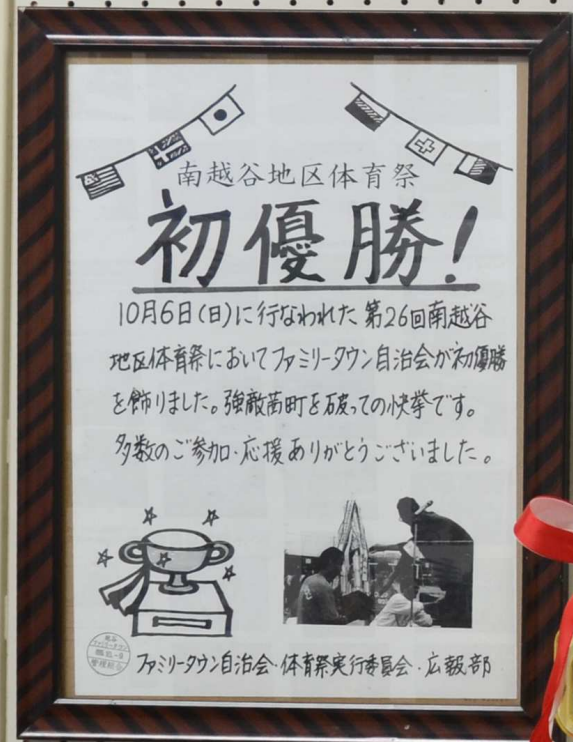 南越谷地区体育祭
初優勝!
10月6日(日)に行なわれた第26回南越谷
地区体育祭においてファミリータウン自治会が初優勝
を飾りました。強敵茜町を破っての快挙です。
多数のご参加・応援ありがとうございました。
ファミリータウン自治会・体育祭実行委員会・広報部